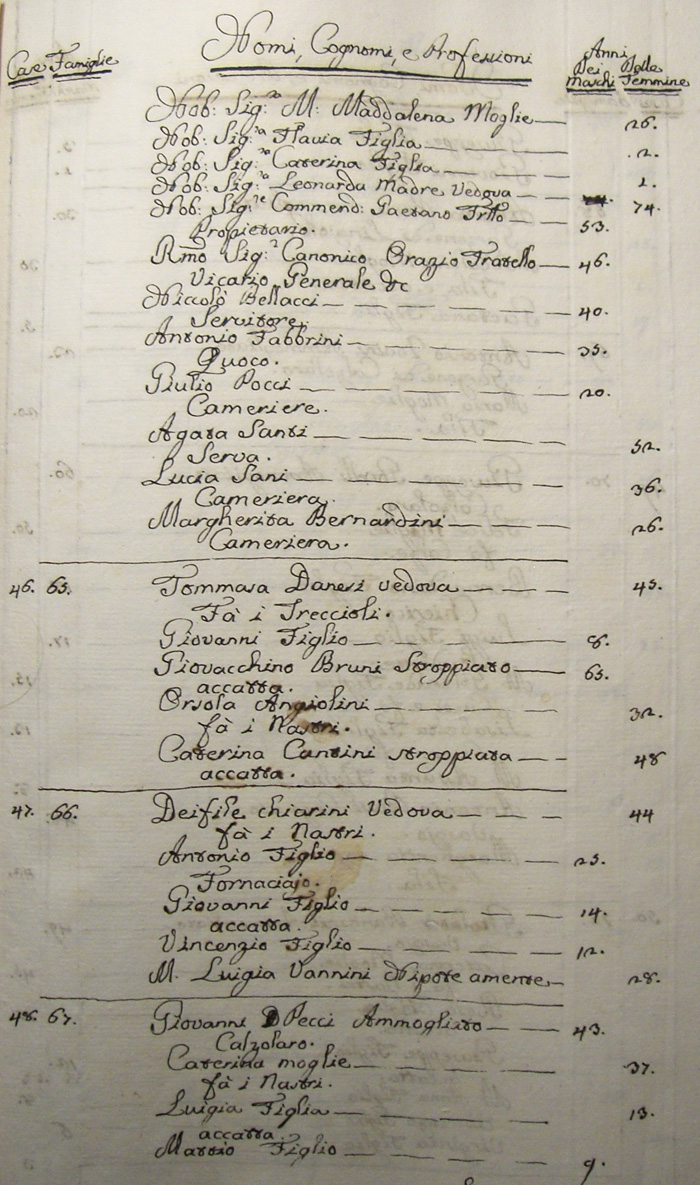 Case Famiglie Nomi, Cognomi, e Professioni Anni Dei Maschi Delle Femmine
Nob: Sig:ra M: Maddalena Moglie 26.
Nob: Sig:ra Flavia Figlia 2.
Nob: Sig:ra Caterina Figlia 1.
Nob: Sig:ra Leonarda Madre Vedova 74.
Nob: Sig:re Commend: Gaetano Frtto 53.
Propietario.
Rmo Sig:r Canonico Orazio Fratello 46.
Vicario Generale &c
Niccolò Bellacci 40.
Servitore.
Antonio Fabbrini 35.
Quoco.
Giulio Pocci 20.
Cameriere.
Agata Santi 52.
Serva.
Lucia Sani 36.
Cameriera.
Margherita Bernardini 26.
Cameriera.
46. 65. Tommasa Danesi vedova 45.
Fà i Treccioli.
Giovanni Figlio 8.
Giovacchino Bruni Stroppiato 65.
accatta.
Orsola Angiolini 32.
fà i Nastri.
Caterina Cantini stroppiata 48
accatta.
47. 66. Deifile chiarini Vedova 44
fà i Nastri.
Antonio Figlio 25.
Fornaciajo.
Giovanni Figlio 14.
accatta.
Vincenzio Figlio 12.
M. Luigia Vannini Nipote amente 28.
48. 67. Giovanni Pecci Ammogliato 43.
Calzolaro.
Caterina moglie 37.
fà i Nastri.
Luigia Figlia 13.
accatta.
Marzio Figlio 9.